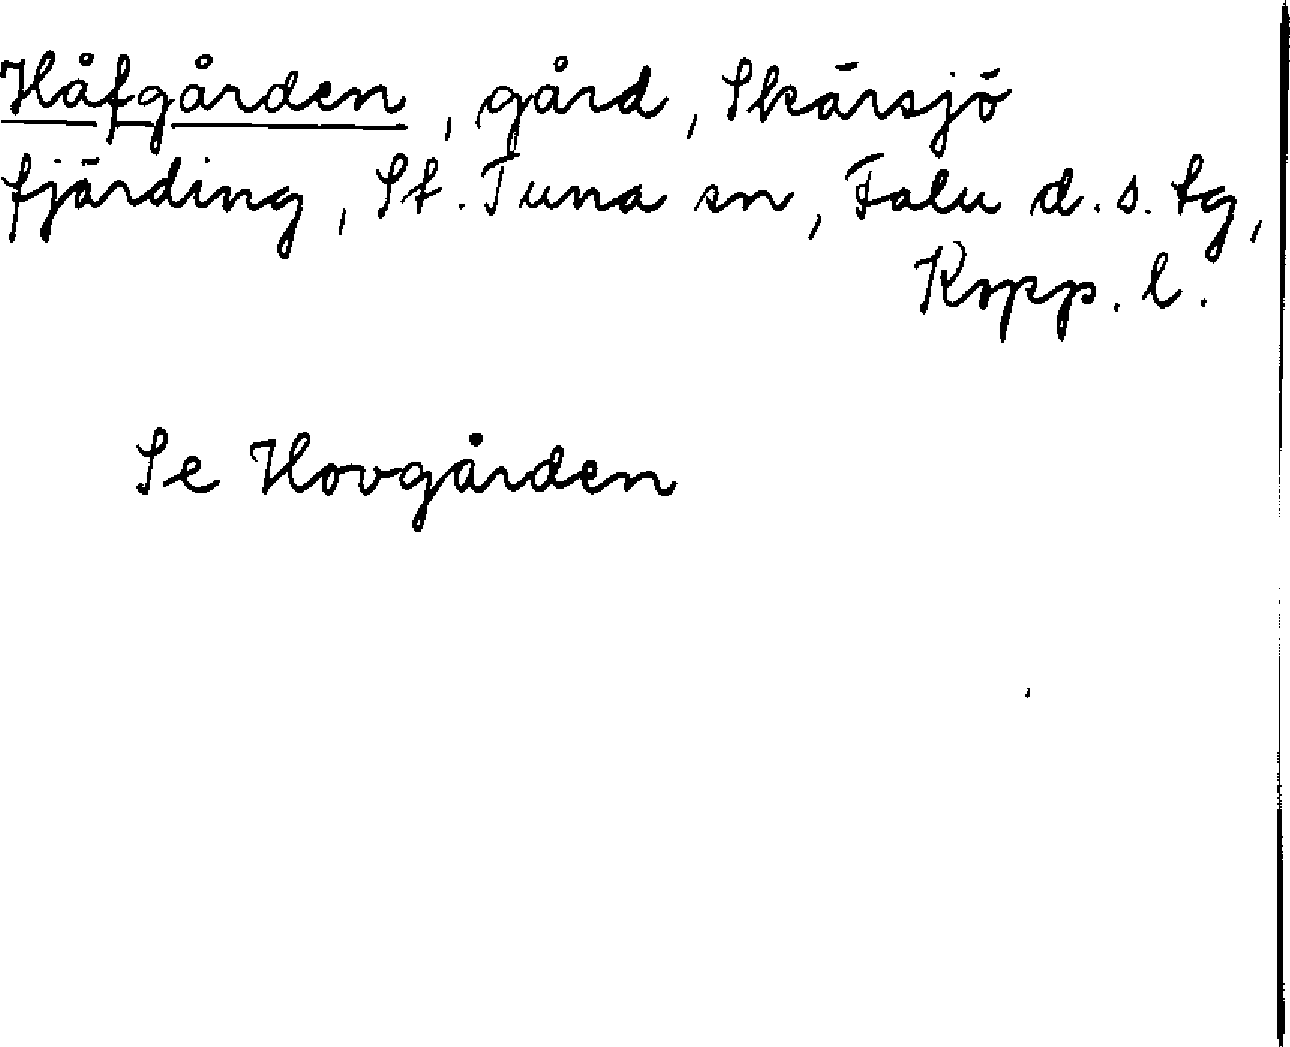 Håfgården, gård, Skärsjö
fjärding, St. Tuna sn, Falu d. s. tg,
Kopp. l.
Se Hovgården